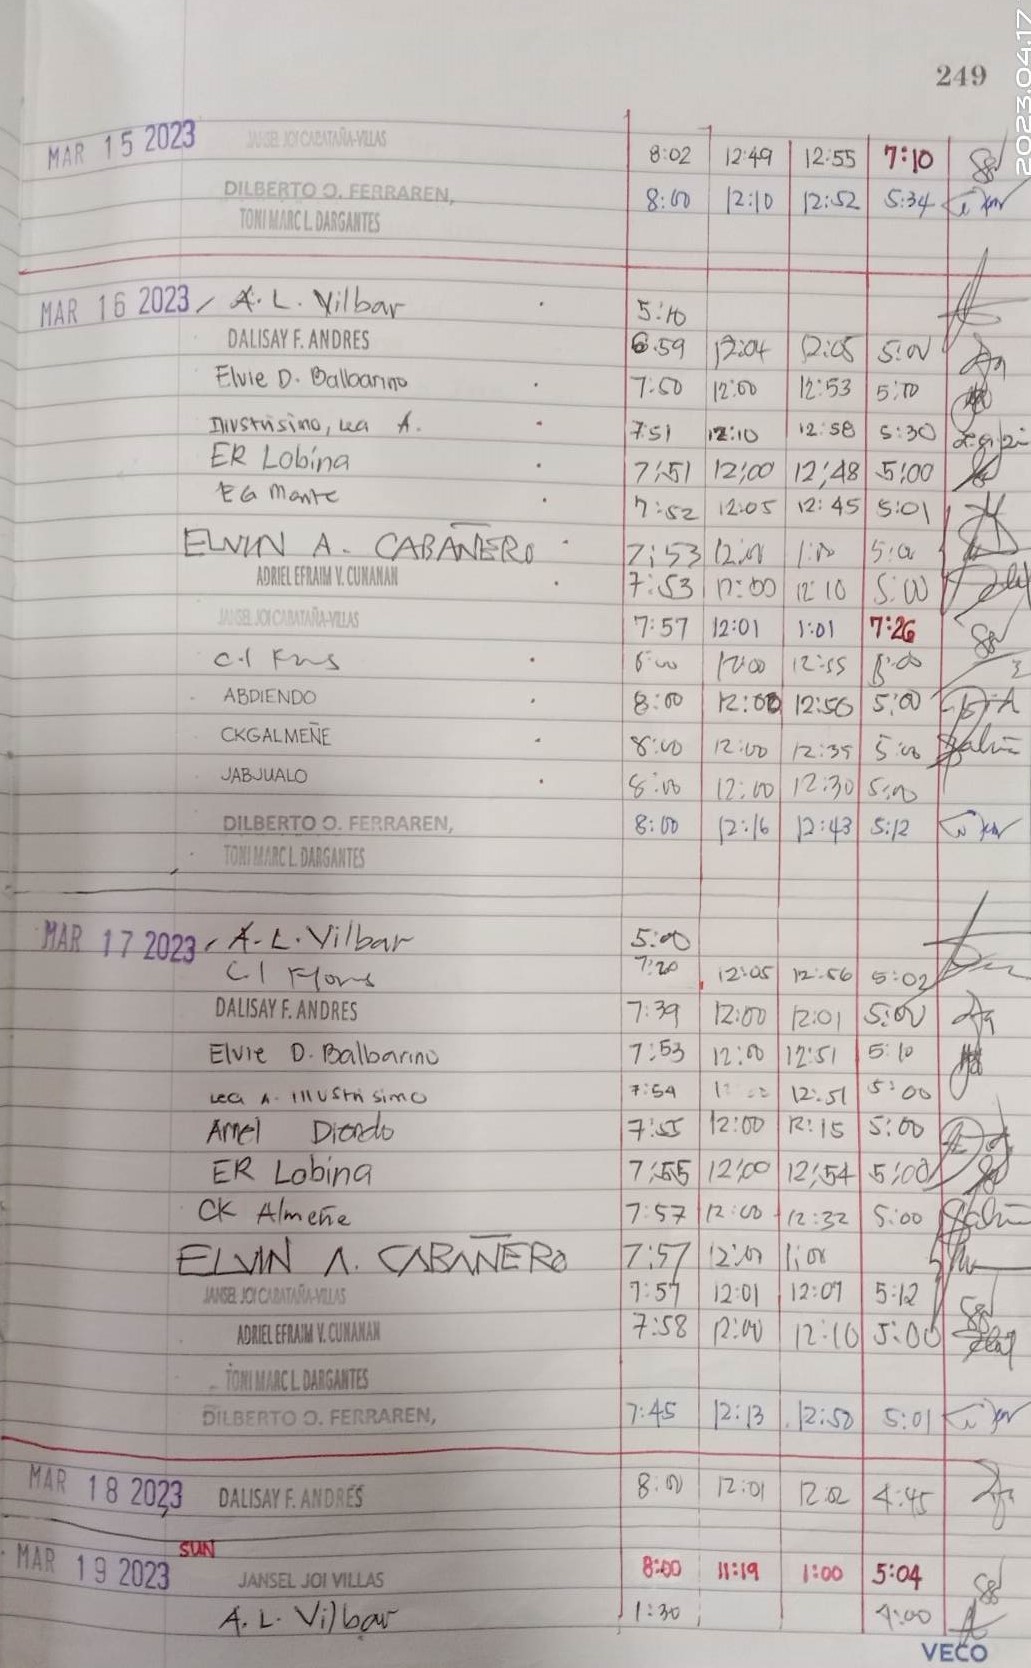 2023.04.17
249
MAR 15 2023 JANSEL JOI CABATAÑA-VILLAS 8:02 12:49 12:55 7:10
DILBERTO O. FERRAREN, 8:00 12:10 12:52 5:34
TONI MARC L. DARGANTES
MAR 16 2023 A. L. Vilbar 5:10
DALISAY F. ANDRES 6:59 12:04 12:05 5:00
Elvie D. Balbarino 7:50 12:00 12:53 5:10
Illustrisimo, Lea A. 7:51 12:10 12:58 5:30
ER Lobina 7:51 12:00 12:48 5:00
EG Mante 7:52 12:05 12:45 5:01
ELVIN A. CABAÑERO 7:53 1:00
ADRIEL EFRAIM V. CUNANAN 7:53 12:00 12:10 5:00
JANSEL JOI CABATAÑA-VILLAS 7:57 12:01 1:01 7:26
C.I 12:00 12:55
ABDIENDO 8:00 12:00 12:50 5:00
CKGALMEÑE 8:00 12:00 12:35 5:00
JABJUALO 8:00 12:00 12:30 5:00
DILBERTO O. FERRAREN, 8:00 12:16 12:43 5:12
TONI MARC L. DARGANTES
MAR 17 2023 A. L. Vilbar 5:00
C I Flores 7:20 12:05 12:56 5:02
DALISAY F. ANDRES 7:39 12:00 12:01 5:00
Elvie D. Balbarino 7:53 12:00 12:51 5:10
Lea A. Illustrisimo 7:54 12:51 5:00
Arnel Diendo 7:55 12:00 12:15 5:00
ER Lobina 7:55 12:00 12:54 5:00
CK Almeñe 7:57 12:00 12:32 5:00
ELVIN A. CABAÑERO 7:57
JANSEL JOI CABATAÑA-VILLAS 7:57 12:01 12:07 5:12
ADRIEL EFRAIM V. CUNANAN 7:58 12:00 12:10 5:00
TONI MARC L. DARGANTES
DILBERTO O. FERRAREN, 7:45 12:13 12:50 5:01
MAR 18 2023 DALISAY F. ANDRES 8:00 12:01 12:02 4:45
SUN
MAR 19 2023 JANSEL JOI VILLAS 8:00 11:19 1:00 5:04
A. L. Vilbar 1:30 4:00
VECO